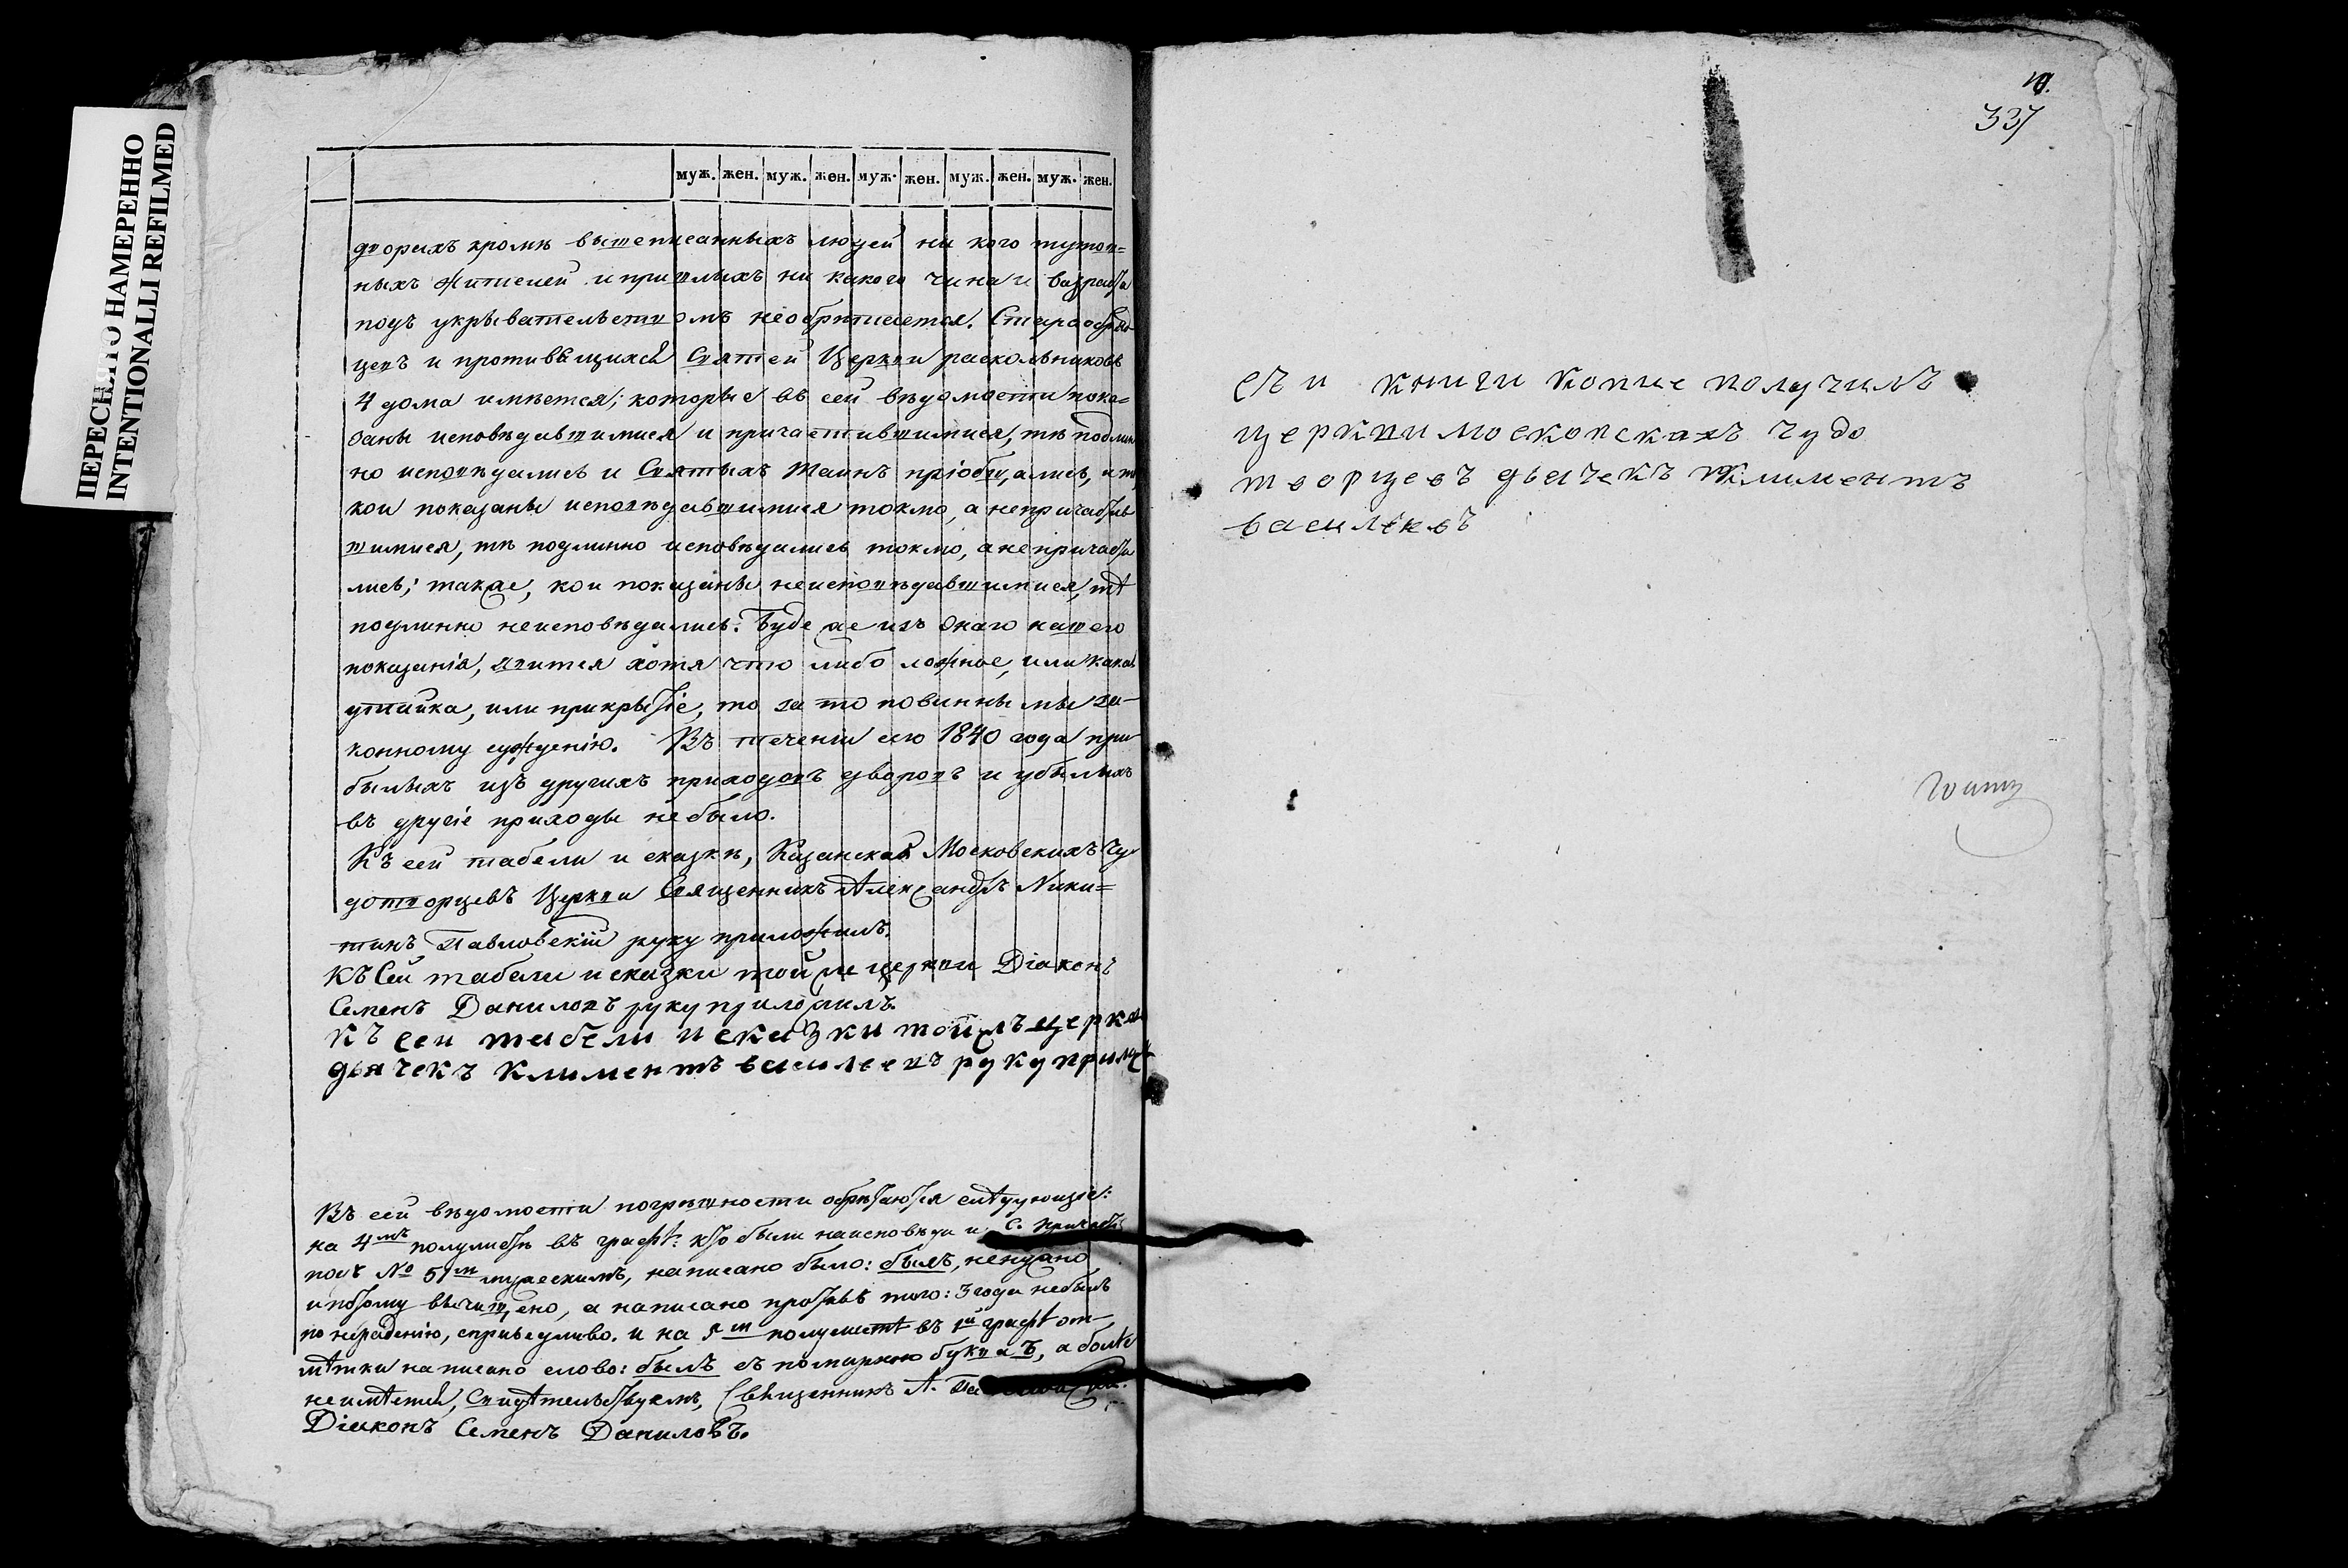 ПЕРЕСНЯТО НАМЕРЕННО
INTENTIONALLI REFILMED
муж. жен. муж. жен. муж. жен. муж. жен. муж. жен.
дворахъ кромѣ вышеписанныхъ людей ни кого тутош=
ныхъ жителей и пришлыхъ ни какого чина и возраста
подъ укрывательствомъ необрѣтается. Старообряд-
цевъ и противящихся Святей Церкви раскольниковъ
4 дома имѣется; которые въ сей вѣдомости пока=
заны исповѣдавшимися и причастившимися, тѣ подлин
но исповѣдались и Святыхъ Таинъ пріобщались, а тѣ,
кои показаны исповѣдавшимися токмо, а непричастив
шимися, тѣ подлинно исповѣдались токмо, а непричасти
лись; также, кои показаны неисповѣдавшимися, тѣ
подлинно неисповѣдались. Буде же изъ онаго нашего
показанія, явится хотя что либо ложное, или какая
утайка, или прикрытіе, то за то повинны мы за-
конному сужденію. Въ теченіи сего 1840 года при-
былыхъ изъ другихъ приходовъ дворовъ и убылыхъ
въ другіе приходы небыло.
Къ сей табели и сказкѣ, Казанской Московскихъ Чу-
дотворцевъ Церкви Священникъ Александръ Ники=
тинъ Павловскій руку приложилъ.
Къ Сей табели и сказки той же церкви Діаконъ
Семенъ Даниловъ руку приложилъ.
Къ сеи табели и сказки тойжъ церкви
дьячекъ Климентъ васильевъ руку прилож
Въ сей вѣдомости погрѣшности обрѣтаются слѣдующіе:
на 4мъ полулистѣ въ графѣ: кто были наисповѣди и С. Причастіи
подъ № 51м мужескимъ, написано было: былъ, ненужно
и потому вычищено, а написано противъ того: 3 года небылъ
по нерадѣнію, справедливо. и на 5м полулистѣ въ 1й графѣ от-
мѣтки написано слово: былъ съ помаркою буквы Ъ, а болѣе
неимѣется, Свидѣтельствуемъ, Священникъ А.
Діаконъ Семенъ Даниловъ.
10.
337
съ и книги копие получилъ
церкви московскахъ чудо
творцевъ дьячекъ Климентъ
васильевъ